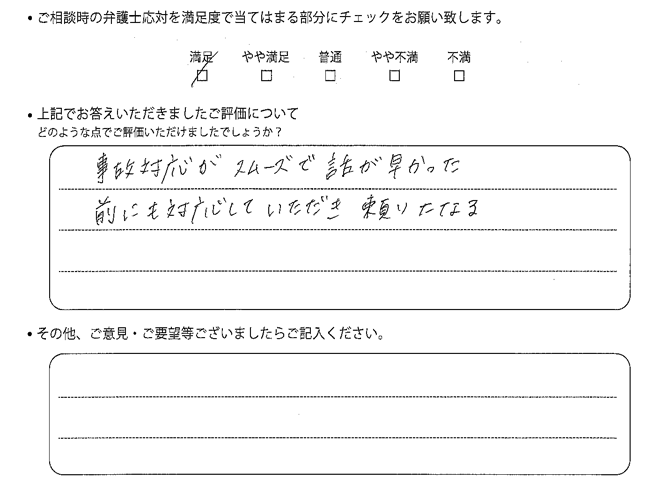 • ご相談時の弁護士応対を満足度で当てはまる部分にチェックをお願い致します。
満足 やや満足 普通 やや不満 不満
□ □ □ □ □
• 上記でお答えいただきましたご評価について
どのような点でご評価いただけましたでしょうか？
事故対応が スムーズで 話が早かった
前にも対応して いただき 頼りたなる
• その他、ご意見・ご要望等ございましたらご記入ください。